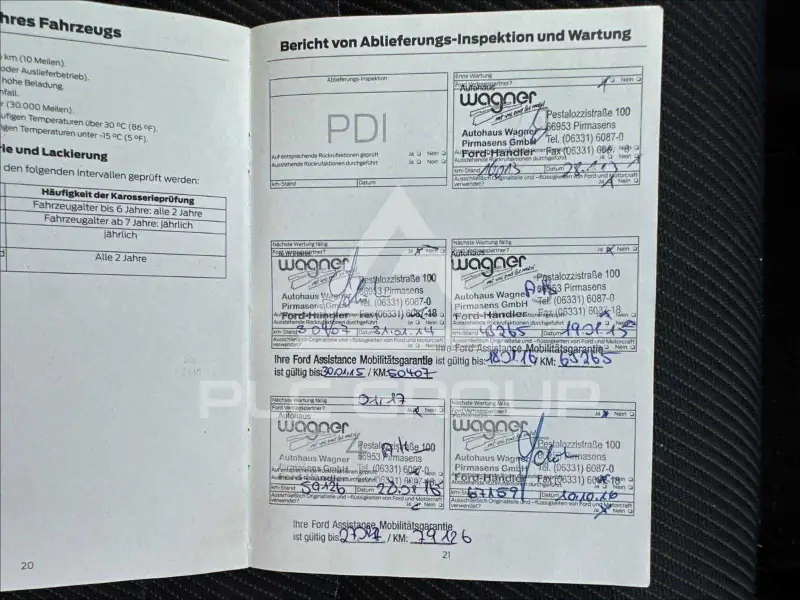 hres Fahrzeugs
km (10 Meilen).
oder Auslieferbetrieb).
hohe Beladung.
nfall.
r (30.000 Meilen).
ufigen Temperaturen über 30 °C (86 °F).
gen Temperaturen unter -15 °C (5 °F).
rie und Lackierung
den folgenden Intervallen geprüft werden:
Häufigkeit der Karosserieprüfung
Fahrzeugalter bis 6 Jahre: alle 2 Jahre
Fahrzeugalter ab 7 Jahre: jährlich
jährlich
Alle 2 Jahre
20
Bericht von Ablieferungs-Inspektion und Wartung
Ablieferungs-Inspektion
PDI
Auf entsprechende Rückrufaktionen geprüft Ja Nein
Ausstehende Rückrufaktionen durchgeführt Ja Nein
km-Stand Datum
Erste Wartung
Ford Vertragspartner? Ja Nein
Autohaus
wagner
Pestalozzistraße 100
66953 Pirmasens
Autohaus Wagner Tel. (06331) 6087-0
Pirmasens GmbH
Ford-Händler
Ausstehende Rückrufaktionen durchgeführt
km-Stand Datum
Ausschließlich Originalteile und -flüssigkeiten von Ford und Motorcraft
verwendet? Ja Nein
Nächste Wartung fällig
Ford Vertragspartner? Ja Nein
wagner
Pestalozzistraße 100
66953 Pirmasens
Autohaus Wagner Tel. (06331) 6087-0
Pirmasens GmbH
Ford-Händler
km-Stand 30407 Datum 31.01.14
Ausschließlich Originalteile und -flüssigkeiten von Ford und Motorcraft
verwendet? Ja Nein
Ihre Ford Assistance Mobilitätsgarantie
ist gültig bis: 30.01.15 / KM: 50407
Nächste Wartung fällig
Ford Vertragspartner? Ja Nein
wagner
Pestalozzistraße 100
66953 Pirmasens
Autohaus Wagner Tel. (06331) 6087-0
Pirmasens GmbH
Ford-Händler
km-Stand Datum
Ausschließlich Originalteile und -flüssigkeiten von Ford und Motorcraft
verwendet? Ja Nein
Ihre Ford Assistance Mobilitätsgarantie
ist gültig bis: / KM:
Nächste Wartung fällig 01.17
Ford Vertragspartner? Ja Nein
Autohaus
wagner
Pestalozzistraße 100
66953 Pirmasens
Autohaus Wagner Tel. (06331) 6087-0
Pirmasens GmbH
Ford-Händler
km-Stand 59126 Datum
Ausschließlich Originalteile und -flüssigkeiten von Ford und Motorcraft
verwendet? Ja Nein
Ihre Ford Assistance Mobilitätsgarantie
ist gültig bis: / KM: 79126
Nächste Wartung fällig
Ford Vertragspartner? Ja Nein
wagner
Pestalozzistraße 100
66953 Pirmasens
Autohaus Wagner Tel. (06331) 6087-0
Pirmasens GmbH
Ford-Händler
km-Stand Datum 10.10.16
Ausschließlich Originalteile und -flüssigkeiten von Ford und Motorcraft
verwendet? Ja Nein
21
PLC GROUP